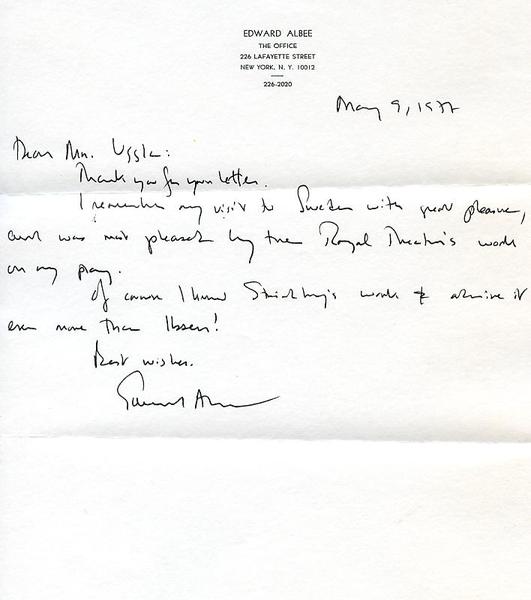 EDWARD ALBEE
THE OFFICE
226 LAFAYETTE STREET
NEW YORK, N. Y. 10012
226-2020
May 9, 1977
Dear Mr.
Thank you for your letter.
I remember my visit to Sweden with great pleasure,
and was most pleased by the Royal Theatre's work
on my play.
Of course I know Strindberg's work & admire it
even more than Ibsen!
Best wishes.
Edward Albee